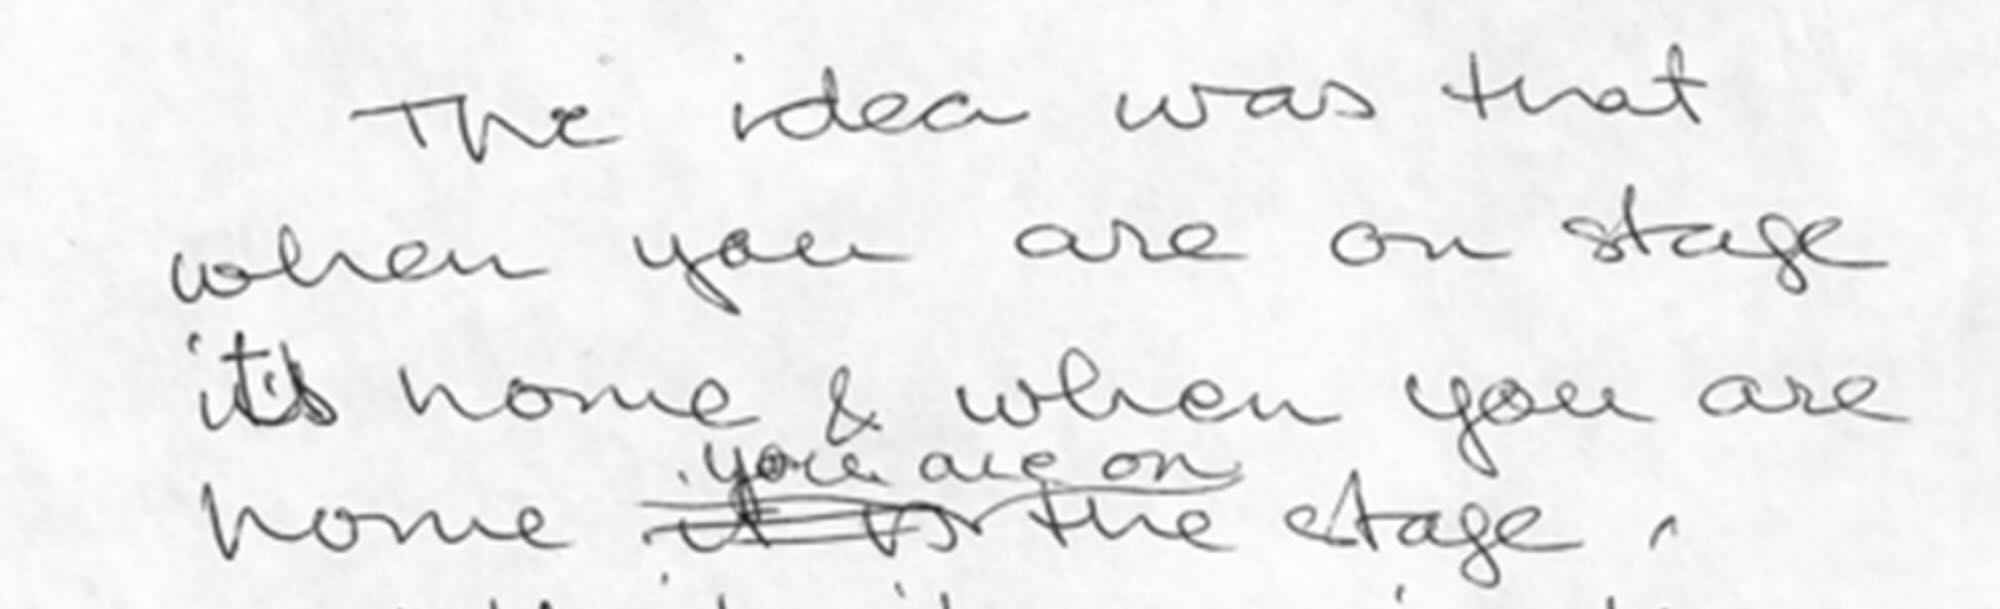 The idea was that
when you are on stage
it's home & when you are
you are on
home it is the stage.